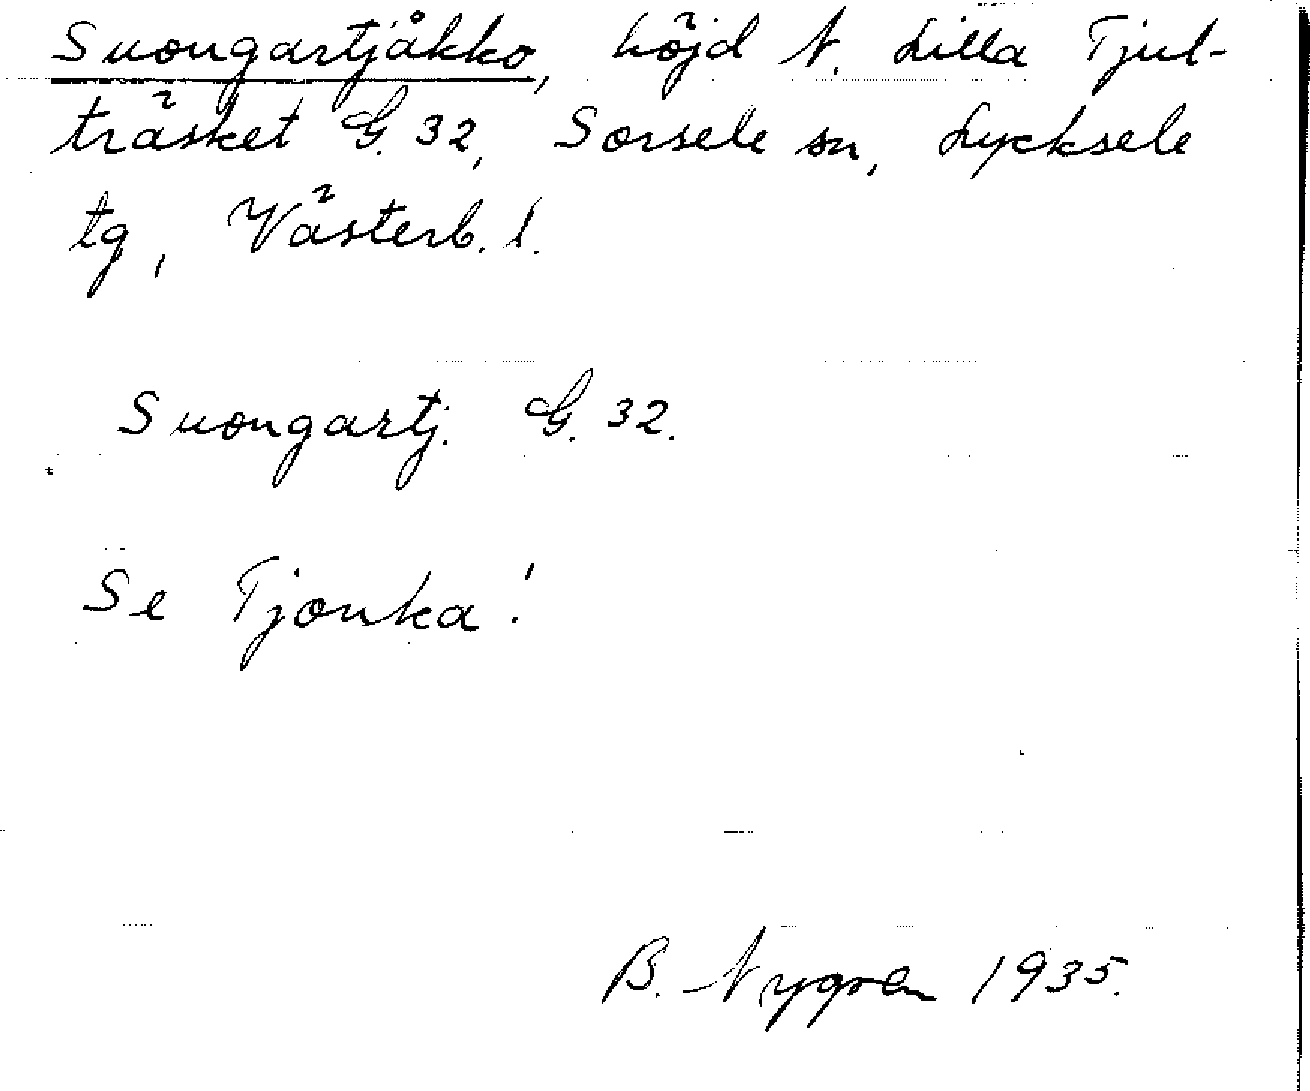 Suongartjåkko, höjd N. Lilla Tjul-
träsket G. 32, Sorsele sn, Lycksele
tg, Västerb. l.
Suongartj. G. 32.
Se Tjonka!
B. Nygren 1935.